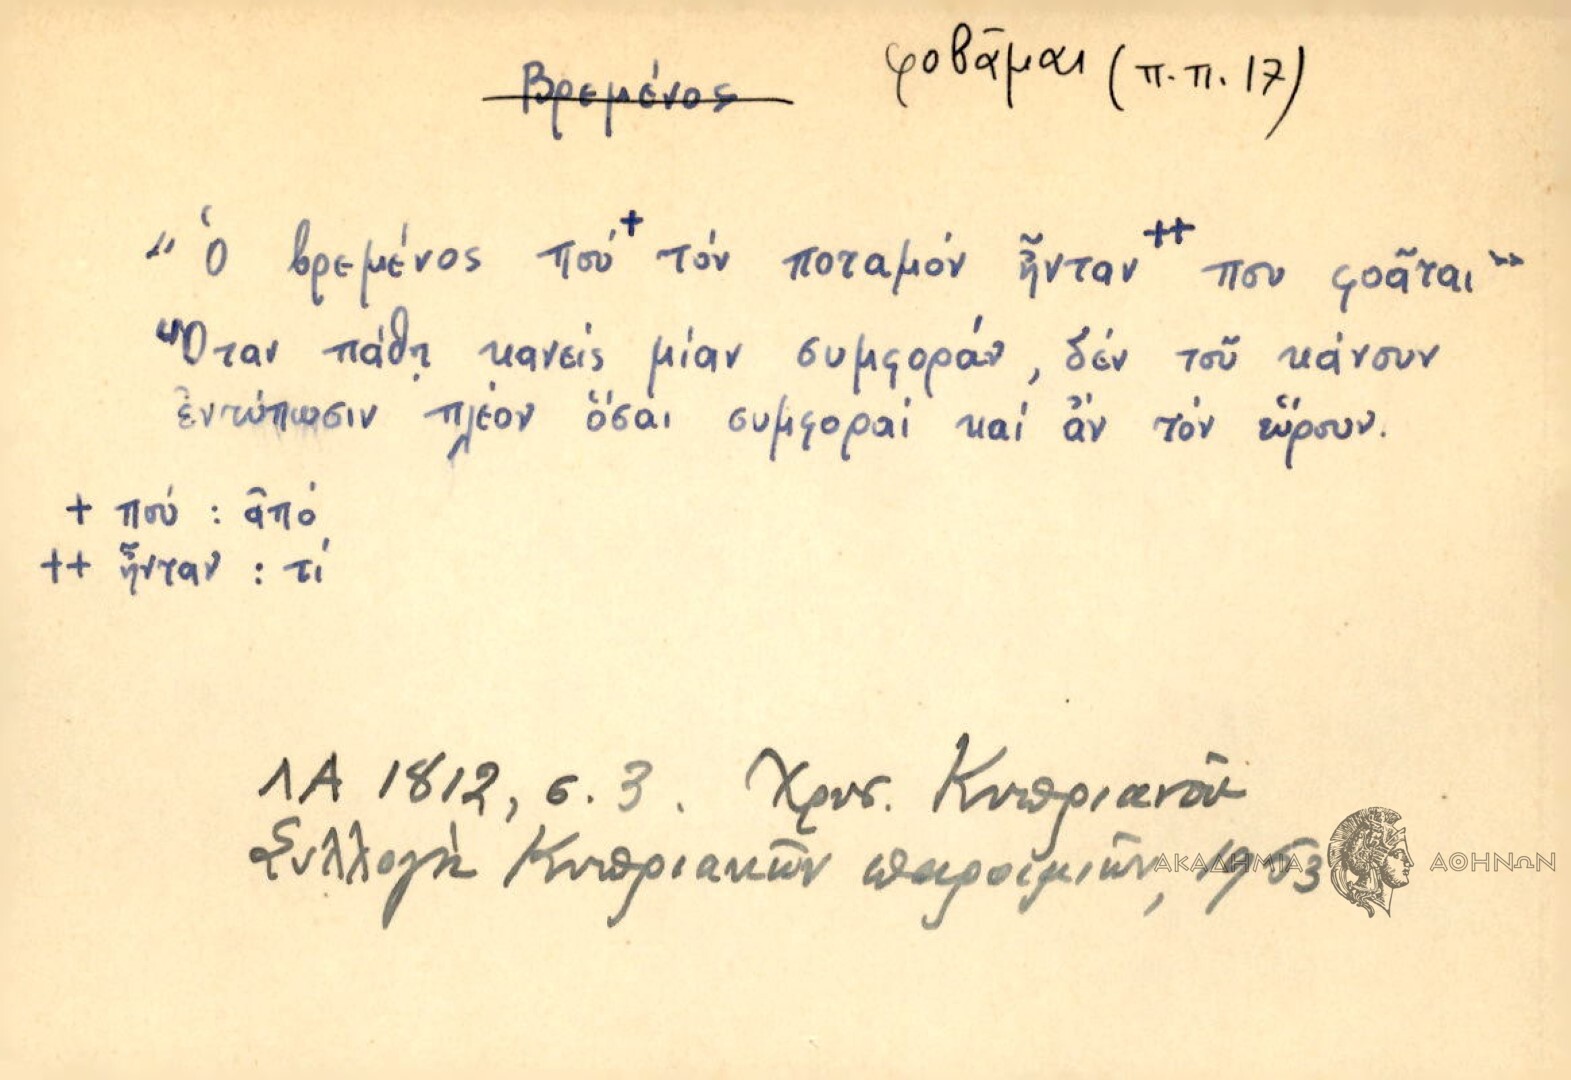 Βρεμένος φοβᾶμαι (π.π. 17)
"Ὁ βρεμένος πού+ τόν ποταμόν ἦνταν++ που φοᾶται"
Ὅταν πάθῃ κανείς μίαν συμφοράν, δέν τοῦ κάνουν
ἐντύπωσιν πλέον ὅσαι συμφοραί καί ἄν τόν εὕρουν.
+ πού : ἀπό
++ ἦνταν : τί
ΛΑ 1812, σ. 3. Χρυσ. Κυπριανοῦ
Συλλογή Κυπριακῶν παροιμιῶν, 1953
ΑΚΑΔΗΜΙΑ ΑΘΗΝΩΝ